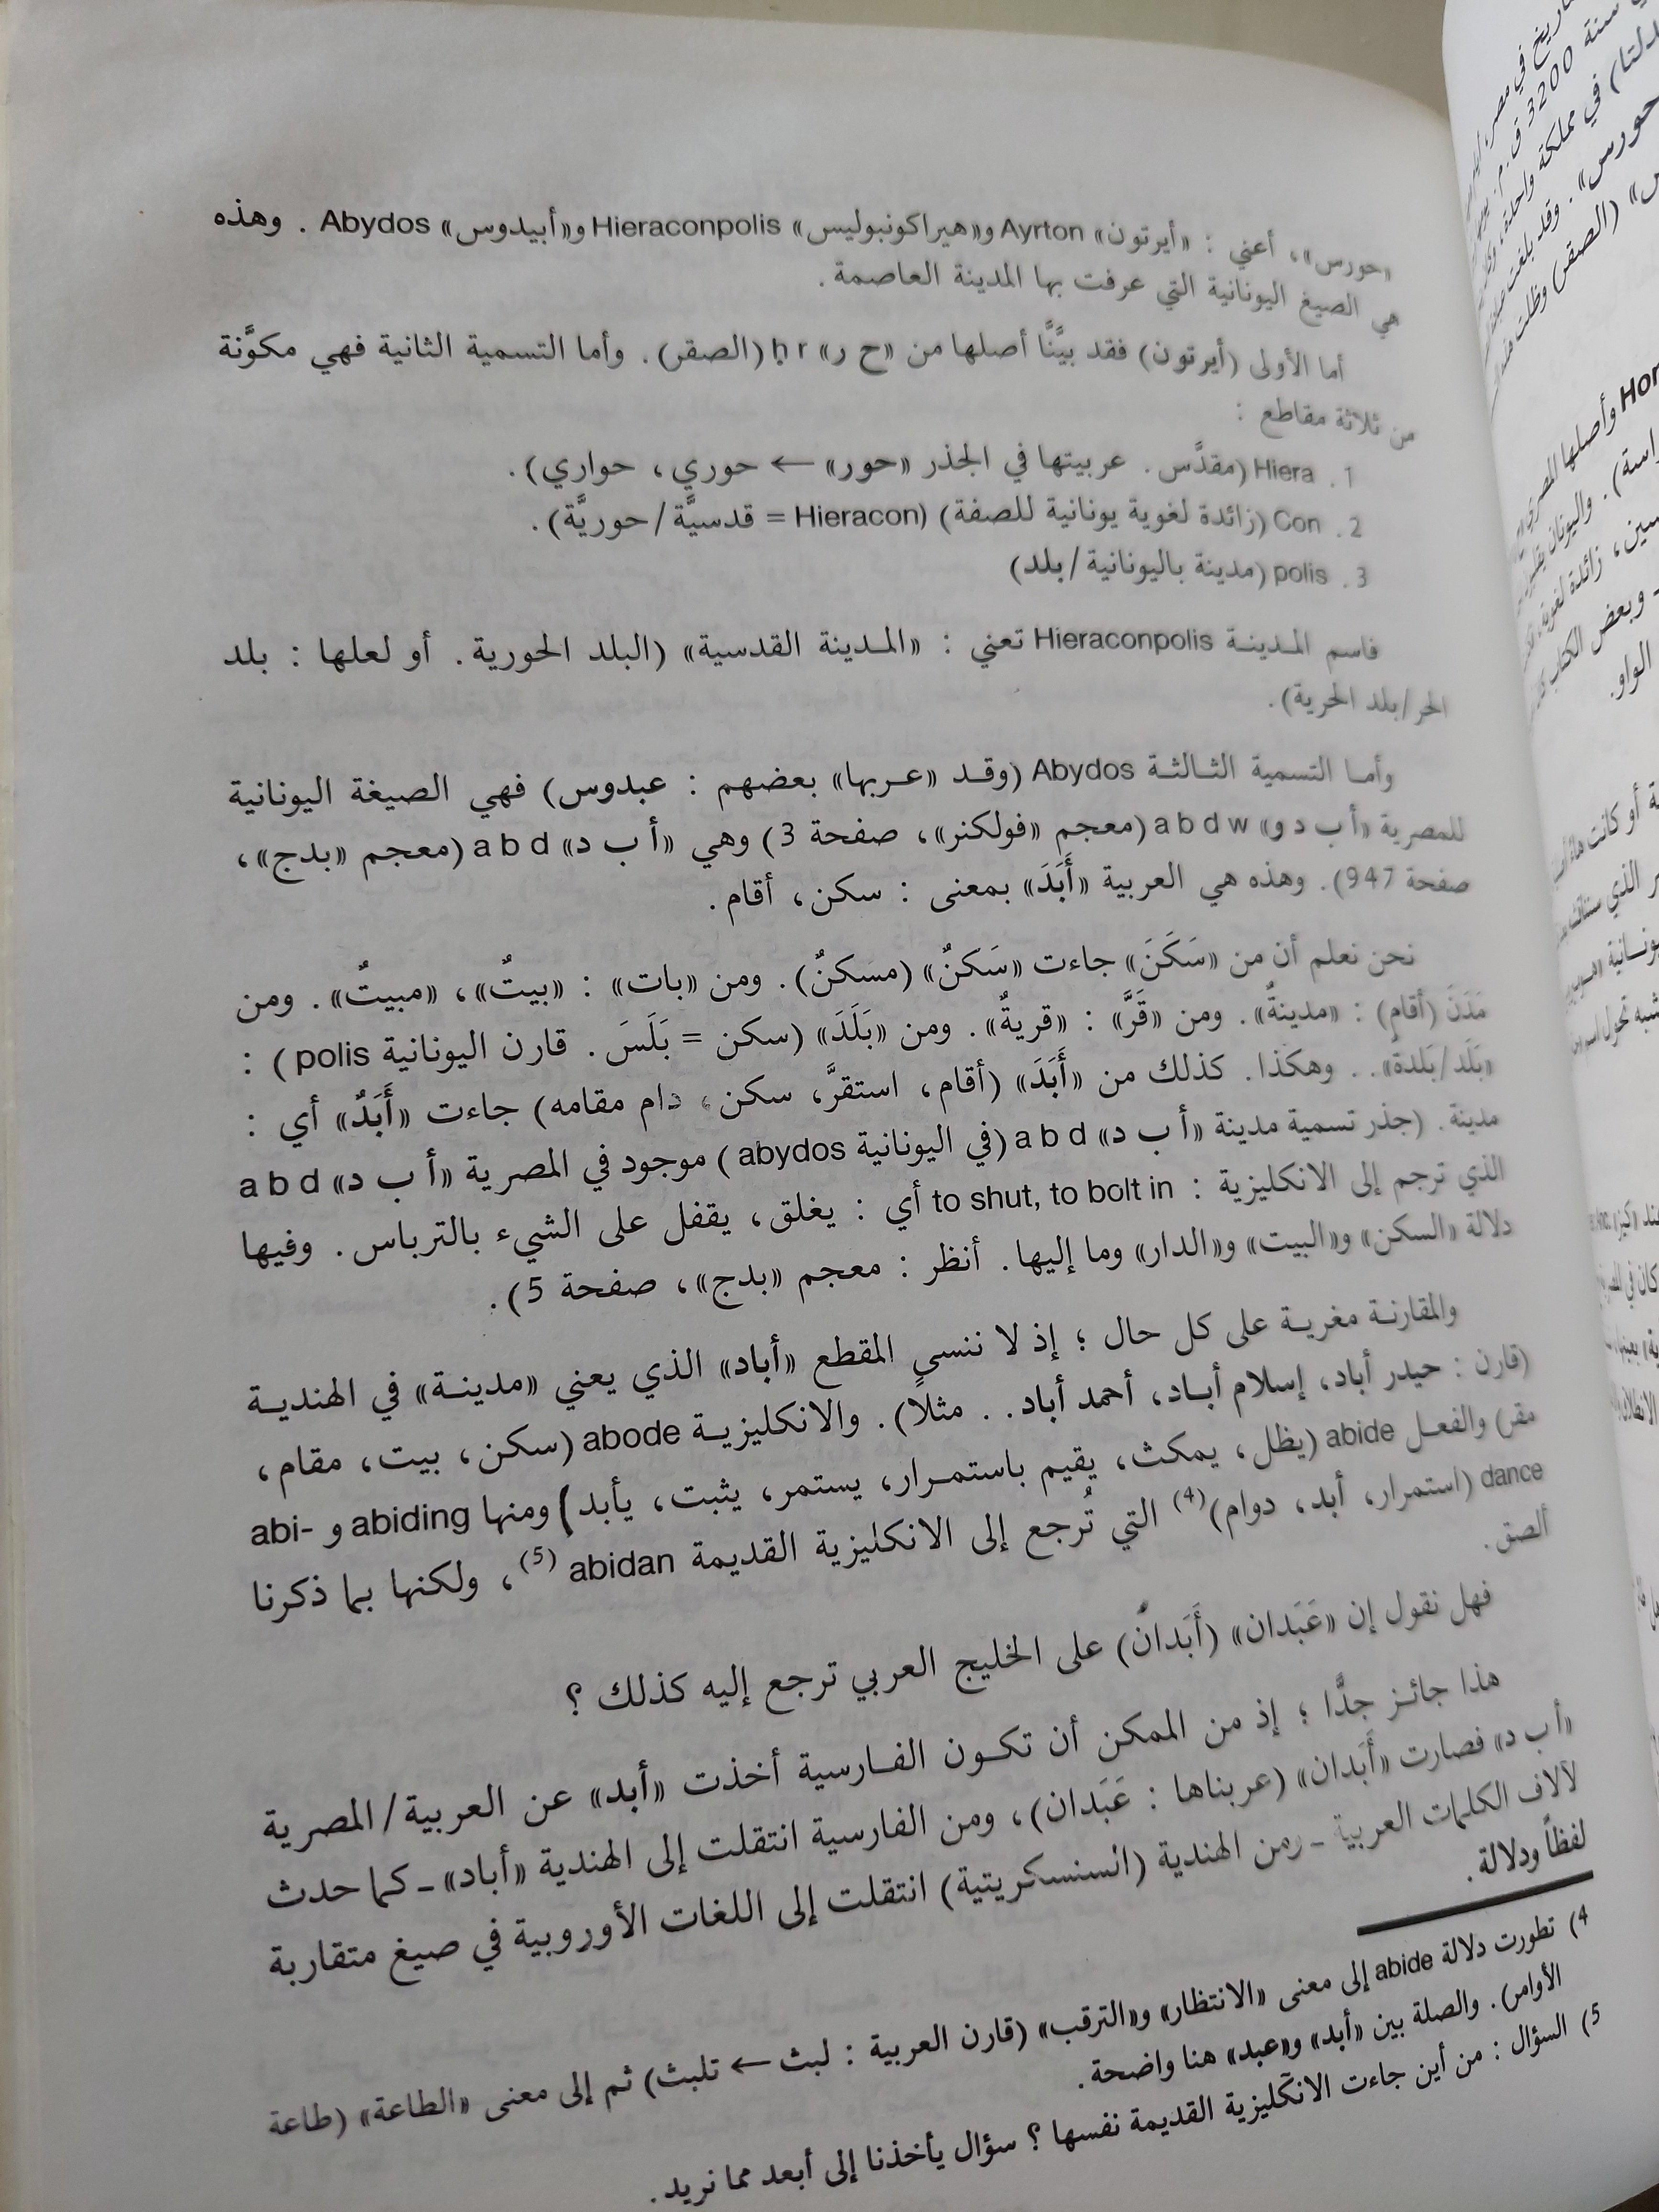 «حورس»، أعني : «أيرتون» Ayrton و«هيراكونبوليس» Hieraconpolis و«أبيدوس» Abydos . وهذه
هي الصيغ اليونانية التي عرفت بها المدينة العاصمة .
أما الأولى (أيرتون) فقد بيَّنَّا أصلها من «ح ر» ḥr (الصقر). وأما التسمية الثانية فهي مكوَّنة
من ثلاثة مقاطع :
1 . Hiera (مقدَّس . عربيتها في الجذر «حور» ← حوري، حواري).
2 . Con (زائدة لغوية يونانية للصفة) (Hieracon = قدسيَّة/حوريَّة).
3 . polis (مدينة باليونانية/بلد)
فاسم المدينة Hieraconpolis تعني : «المدينة القدسية» (البلد الحورية. أو لعلها : بلد
الحر/بلد الحرية).
وأما التسمية الثالثة Abydos (وقد «عربها» بعضهم : عبدوس) فهي الصيغة اليونانية
للمصرية «أ ب د و» a b d w (معجم «فولكنر»، صفحة 3) وهي «أ ب د» a b d (معجم «بدج»،
صفحة 947). وهذه هي العربية «أَبَدَ» بمعنى : سكن، أقام.
نحن نعلم أن من «سَكَنَ» جاءت «سَكنٌ» (مسكنٌ). ومن «بات» : «بيتٌ»، «مبيتٌ». ومن
مَدَنَ (أقام) : «مدينةٌ». ومن «قَرَّ» : «قريةٌ». ومن «بَلَدَ» (سكن = بَلَسَ. قارن اليونانية polis ) :
«بَلَد/بَلدة». . وهكذا. كذلك من «أَبَدَ» (أقام، استقرَّ، سكن، دام مقامه) جاءت «أَبَدٌ» أي :
مدينة. (جذر تسمية مدينة «أ ب د» a b d (في اليونانية abydos ) موجود في المصرية «أ ب د» a b d
الذي ترجم إلى الانكليزية : to shut, to bolt in أي : يغلق، يقفل على الشيء بالترباس. وفيها
دلالة «السكن» و«البيت» و«الدار» وما إليها. أنظر : معجم «بدج»، صفحة 5).
والمقارنة مغرية على كل حال ؛ إذ لا ننسى المقطع «أباد» الذي يعني «مدينة» في الهندية
(قارن : حيدر أباد، إسلام أباد، أحمد أباد. . مثلاً). والانكليزية abode (سكن، بيت، مقام،
مقر) والفعل abide (يظل، يمكث، يقيم باستمرار، يستمر، يثبت، يأبد) ومنها abiding و abi-
dance (استمرار، أبد، دوام)(4) التي تُرجع إلى الانكليزية القديمة abidan (5)، ولكنها بما ذكرنا
ألصق.
فهل نقول إن «عَبَدان» (أَبَدانْ) على الخليج العربي ترجع إليه كذلك ؟
هذا جائز جدًّا ؛ إذ من الممكن أن تكون الفارسية أخذت «أبد» عن العربية/المصرية
«أ ب د» فصارت «أَبَدان» (عربناها : عَبَدان)، ومن الفارسية انتقلت إلى الهندية «أباد» ـ كما حدث
لآلاف الكلمات العربية ـ ومن الهندية (السنسكريتية) انتقلت إلى اللغات الأوروبية في صيغ متقاربة
لفظاً ودلالة.
4) تطورت دلالة abide إلى معنى «الانتظار» و«الترقب» (قارن العربية : لبث ← تلبث) ثم إلى معنى «الطاعة» (طاعة
الأوامر). والصلة بين «أبد» و«عبد» هنا واضحة.
5) السؤال : من أين جاءت الانكليزية القديمة نفسها ؟ سؤال يأخذنا إلى أبعد مما نريد.